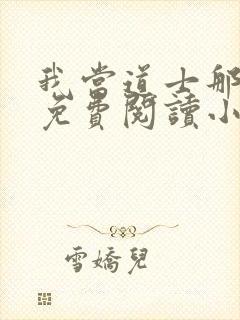 我當道士那
免費閱讀小
雪嬌兒